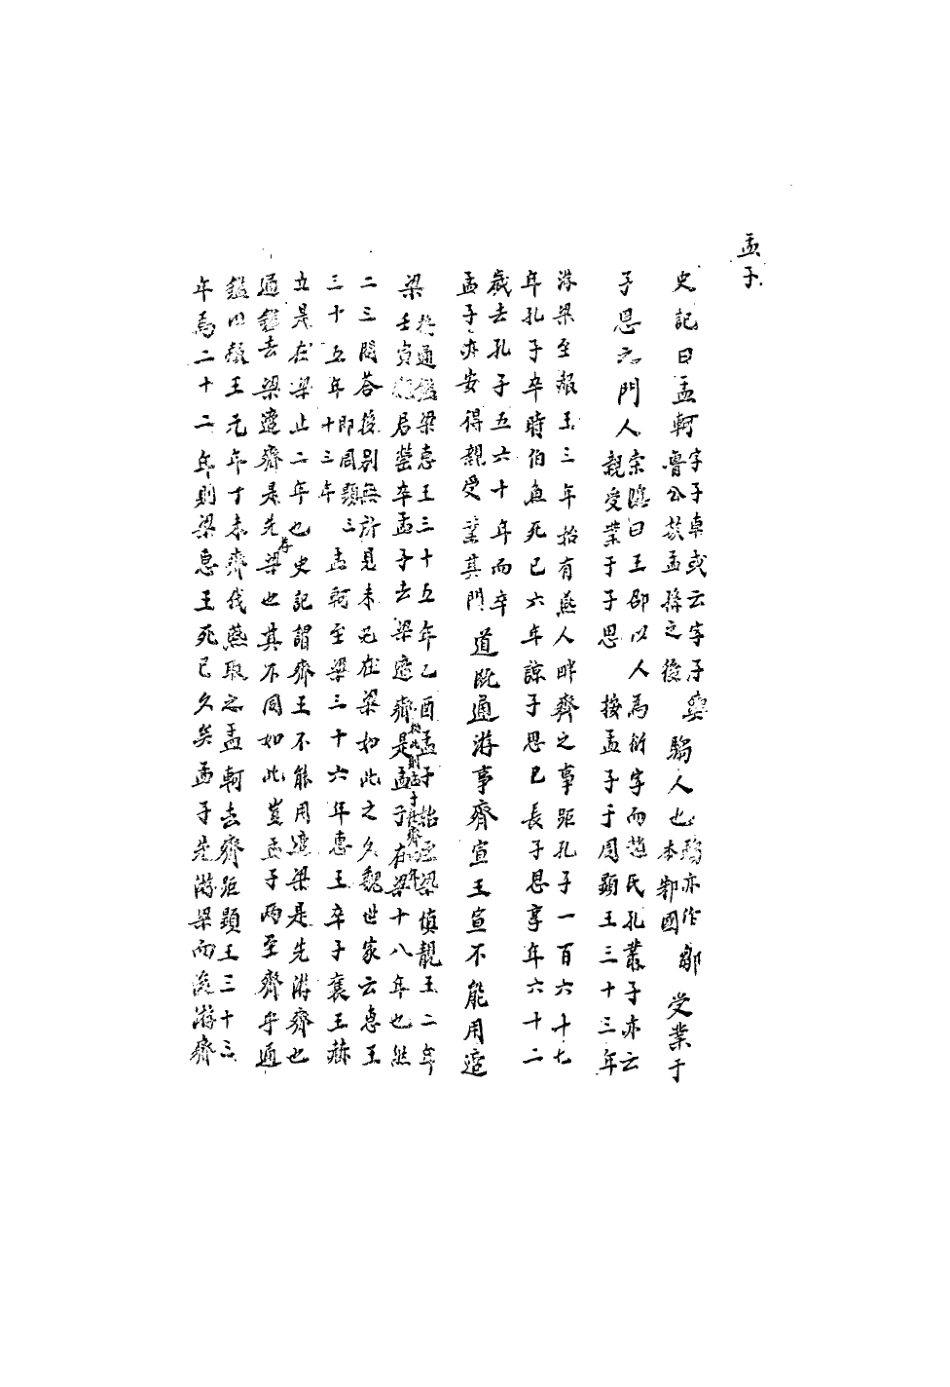 孟子
史記曰孟軻字子車或云字子輿魯公族孟孫之後騶人也騶亦作鄒本邾國受業于
子思之門人索隱曰王邵以人為衍字而趙氏孔叢子亦云親受業于子思按孟子于周顯王三十三年
游梁至赧王三年始有燕人畔齊之事距孔子一百六十七
年孔子卒時伯魚死已六年諒子思已長子思享年六十二
歲去孔子五六十年而卒
孟子亦安得親受業其門道既通游事齊宣王宣不能用適
梁按通鑑梁惠王三十五年乙酉孟子始至梁慎靚王二年
壬寅惠君罃卒孟子去梁適齊是孟子在梁十八年也然
按此則孟子在齊年
二三問答後別無所見未必在梁如此之久魏世家云惠王
三十五年即周顯三十三年孟軻至梁三十六年惠王卒子襄王赫
立是在梁止二年也史記謂齊王不能用適梁是先游齊也
通鑑去梁適齊是先存梁也其不同如此豈孟子兩至齊乎通
鑑以赧王元年丁未齊伐燕取之孟軻去齊距顯王三十三
年為二十二年則梁惠王死已久矣孟子先游梁而後游齊